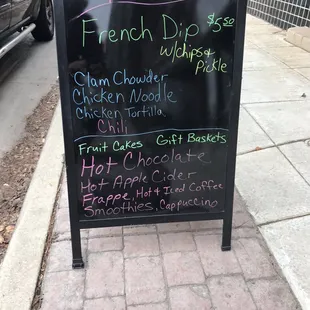 French Dip $5.50
w/chips &
Pickle
Clam Chowder
Chicken Noodle
Chicken Tortilla
Chili
Fruit Cakes Gift Baskets
Hot Chocolate
Hot Apple Cider
Frappe, Hot & Iced Coffee
Smoothies, Cappuccino